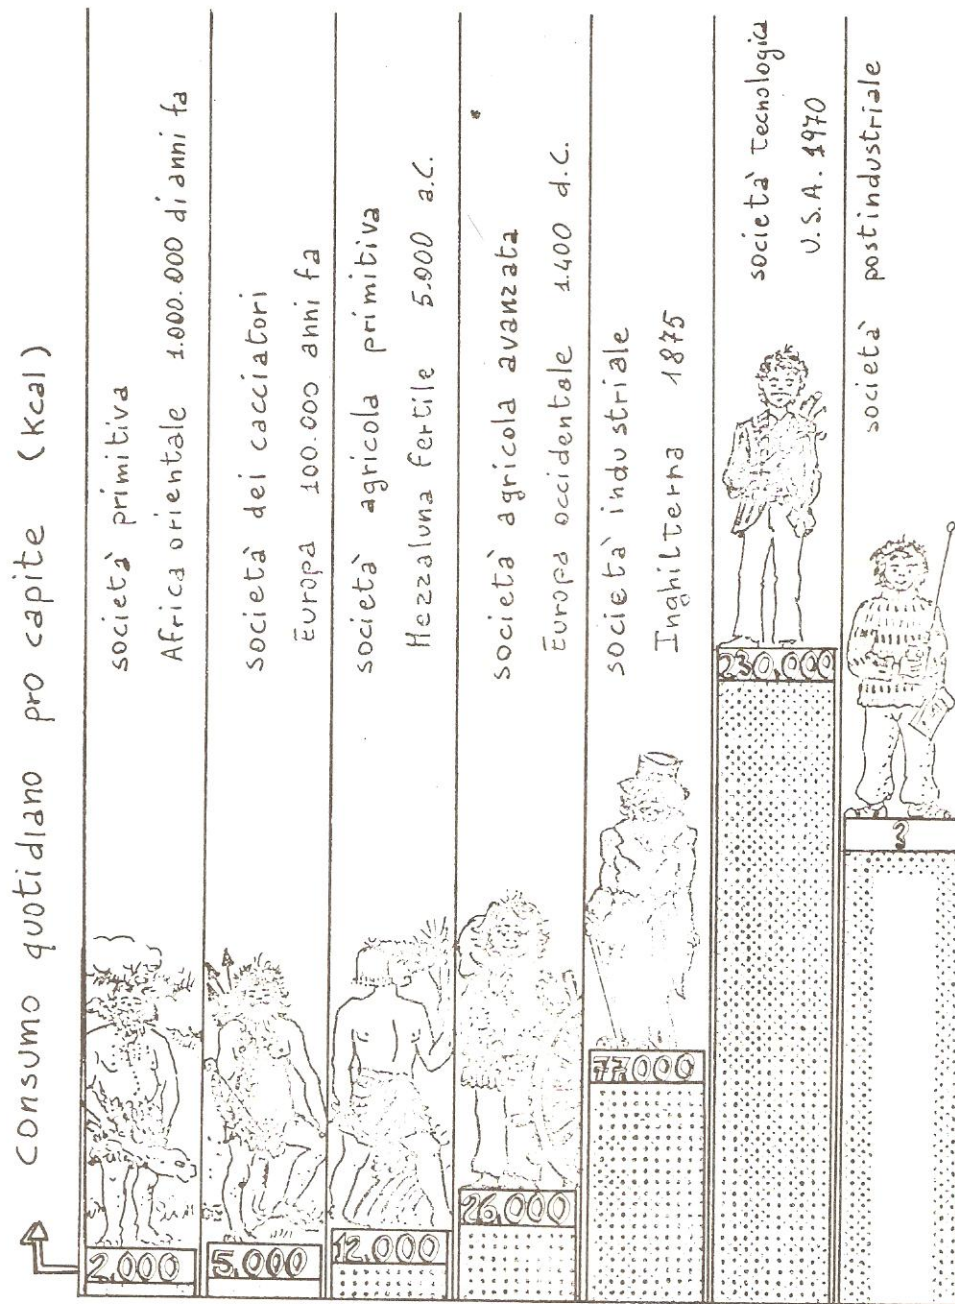 consumo quotidiano pro capite (Kcal)
società primitiva
Africa orientale 1.000.000 di anni fa
2.000
società dei cacciatori
Europa 100.000 anni fa
5.000
società agricola primitiva
Mezzaluna Fertile 5.000 a.C.
12.000
società agricola avanzata
Europa occidentale 1.400 d.C.
26.000
società industriale
Inghilterra 1875
77.000
società tecnologica
U.S.A. 1970
230.000
società postindustriale
?